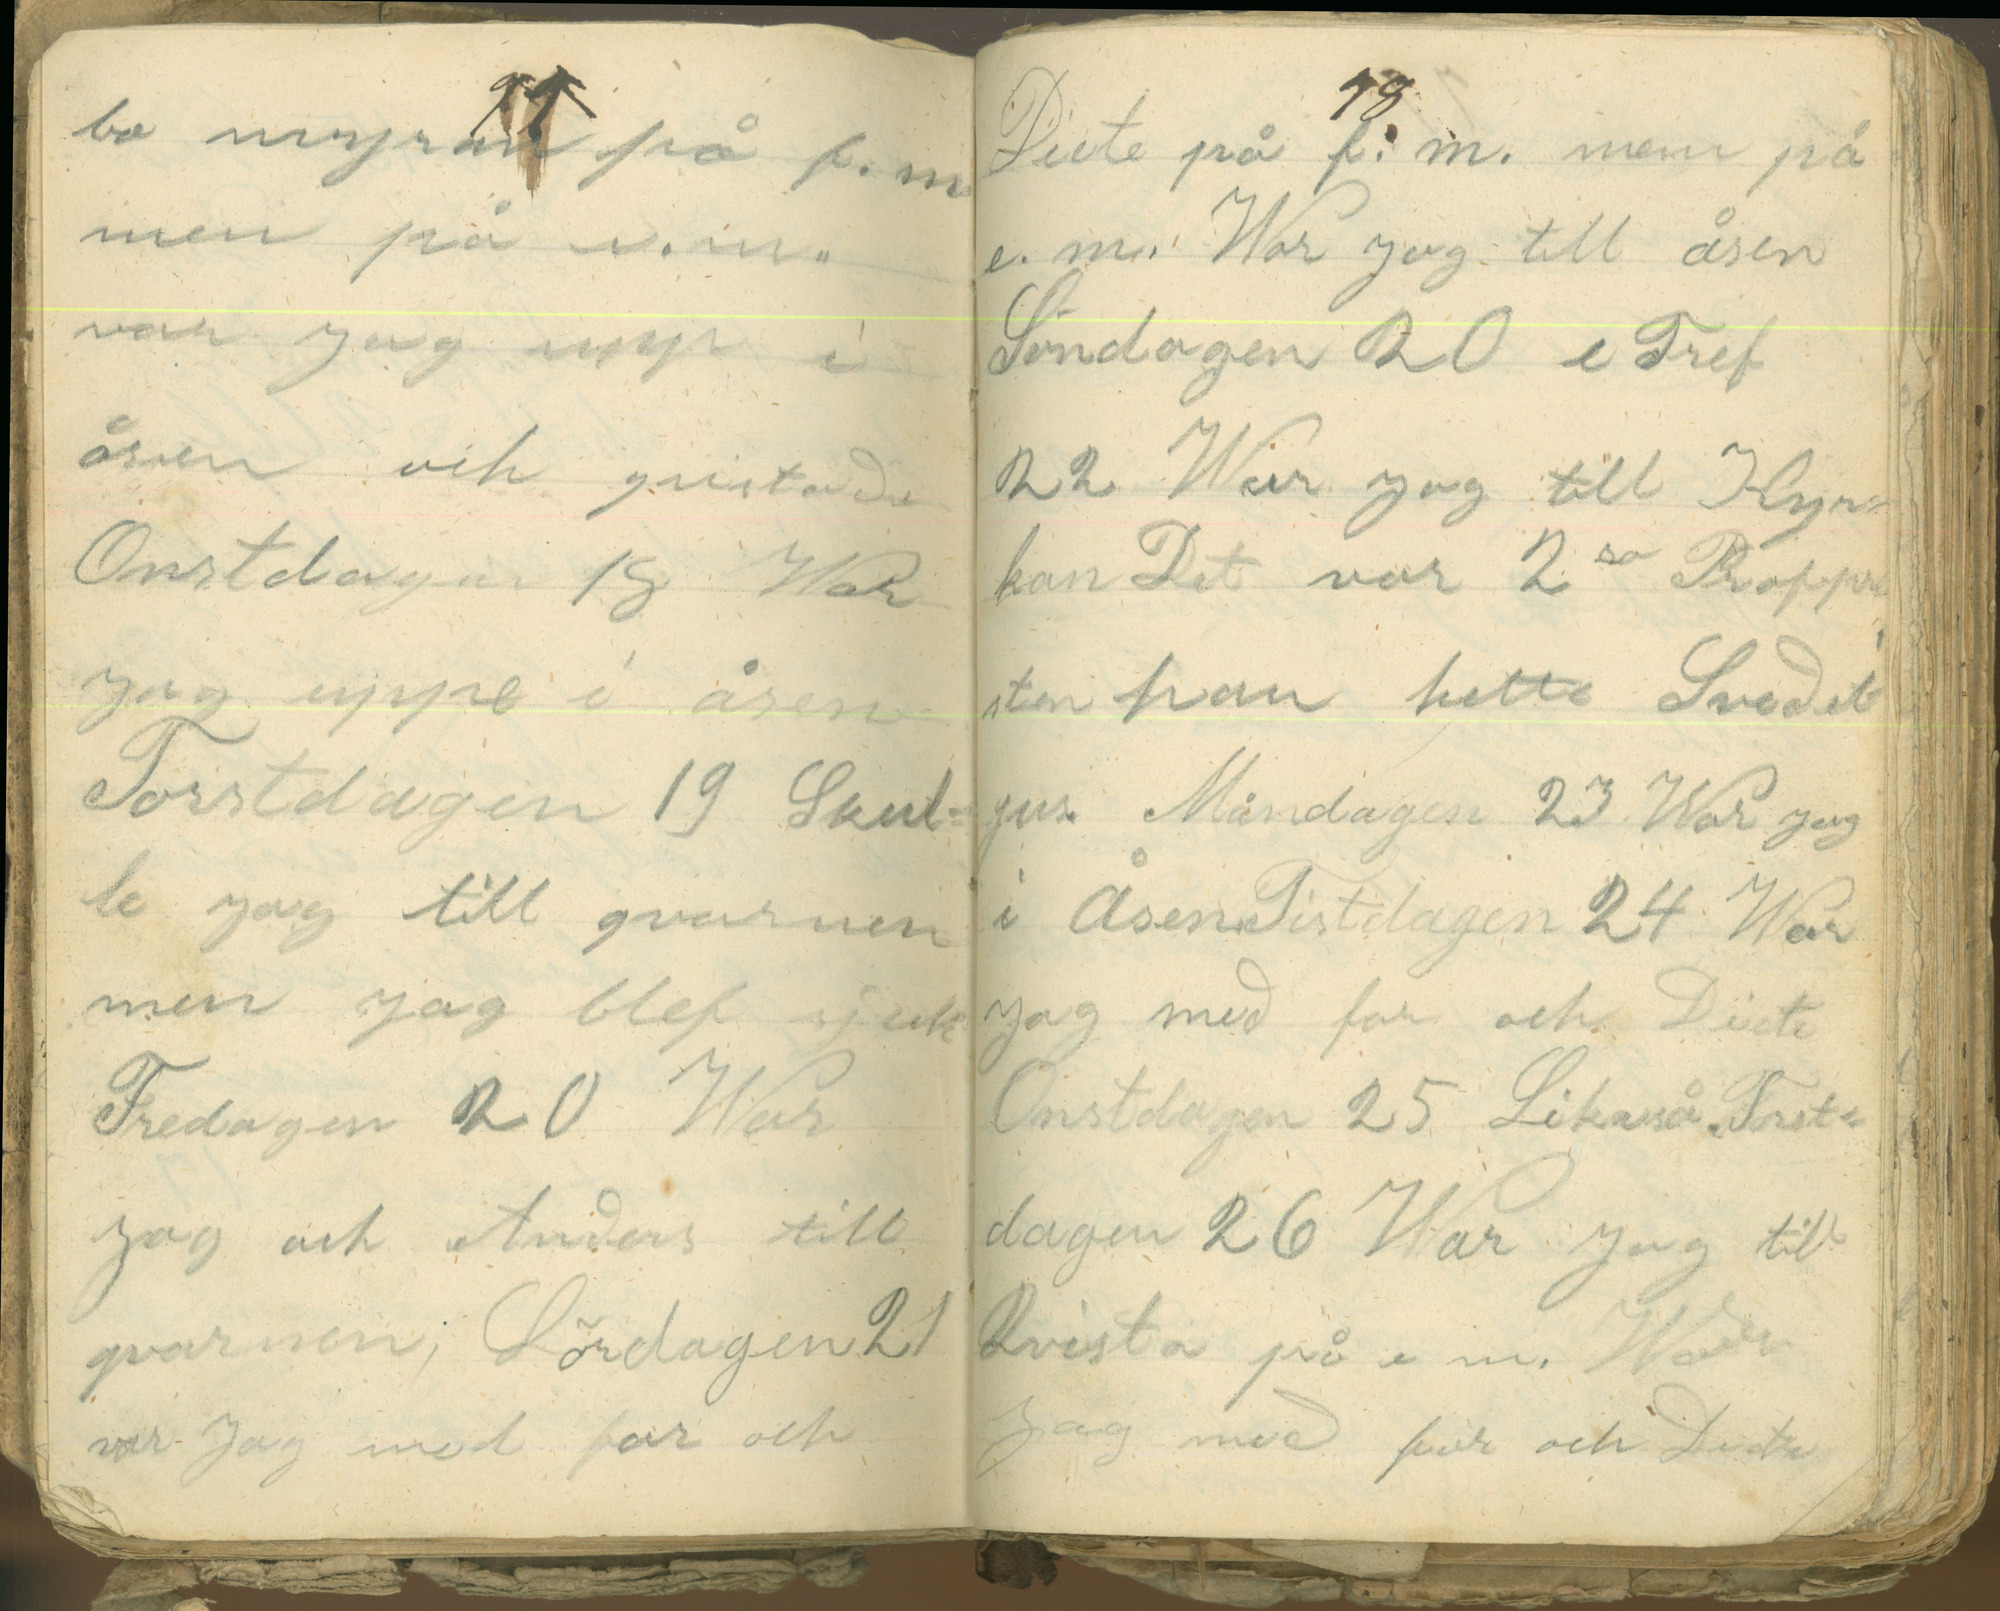 11
bo myran på f. m
men på e. m.
var jag upp i
åsen och qvistade
Onstdagen 18 War
jag uppe i åsen
Torstdagen 19 Skul=
le jag till qvarnen
men jag blef sjuk
Fredagen 20 War
jag och Anders till
qvarnen; Lördagen 21
var Jag med far och
18
Diete på f. m. men på
e. m. War jag till åsen
Söndagen 20 e Tref
22 War jag till Kyr=
kan Det var 2 ra Proppre
sten han hette Svedeli
jus. Måndagen 23 War jag
i Åsen. Tistdagen 24 War
jag med far och Diete
Onstdagen 25 Likaså. Torst=
dagen 26 War jag till
Qvista på e m. War
Jag med far och Diete